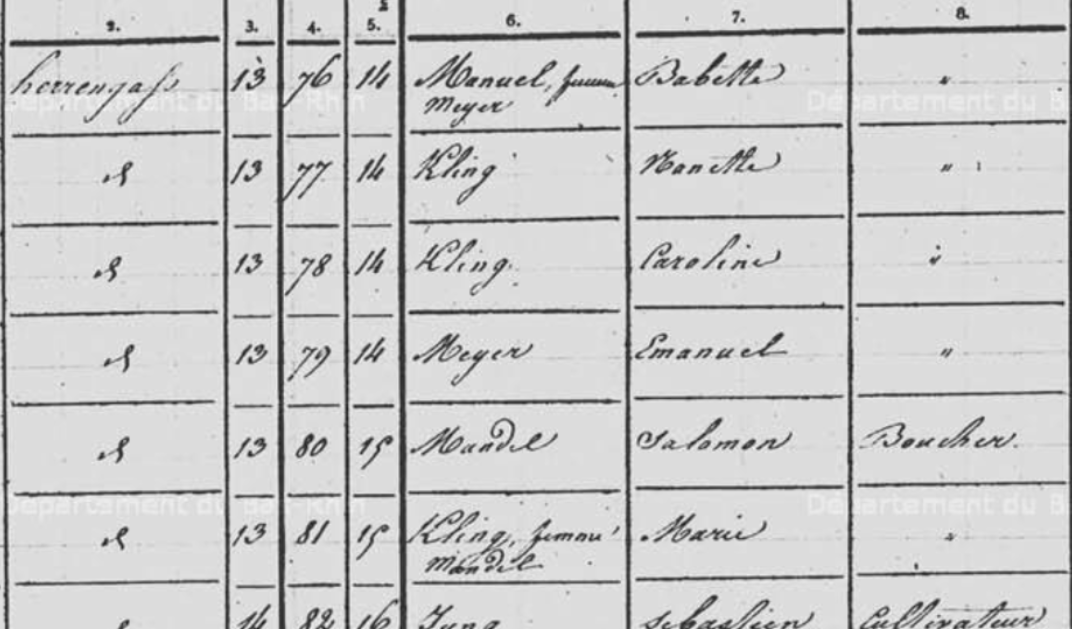 2. 3. 4. 5. 6. 7. 8.
herrengass 13 76 14 Manuel, femme Babette "
Meyer
d 13 77 14 Kling Nanette "
d 13 78 14 Kling. Caroline "
d 13 79 14 Meyer Emanuel "
d 13 80 15 Mandel Salomon Boucher.
d 13 81 15 Kling, femme Marie "
Mandel
d 14 82 16 Jung Sebastien Cultivateur
Département du Bas-Rhin
Département du B
Département du Bas-Rhin
Département du B